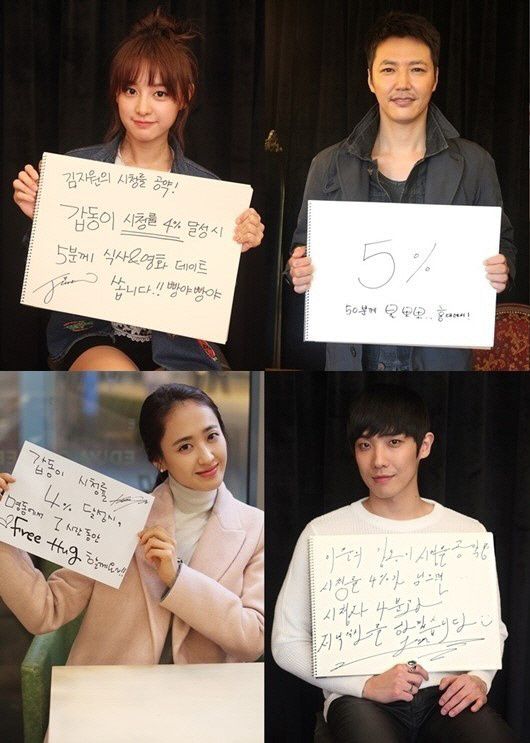 김지원의 시청률 공약!
갑동이 시청률 4% 달성시
5분께 식사&영화 데이트
쏩니다!! 빵야빵야
5%
50분께
갑동이 시청률
4% 달성시,
명동에서
2시간동안
Free Hug
할께요!!
이준의 갑동이 시청률 공약
시청률 4%가 넘으면
시청자 4분과
저녁식사를 하겠습니다